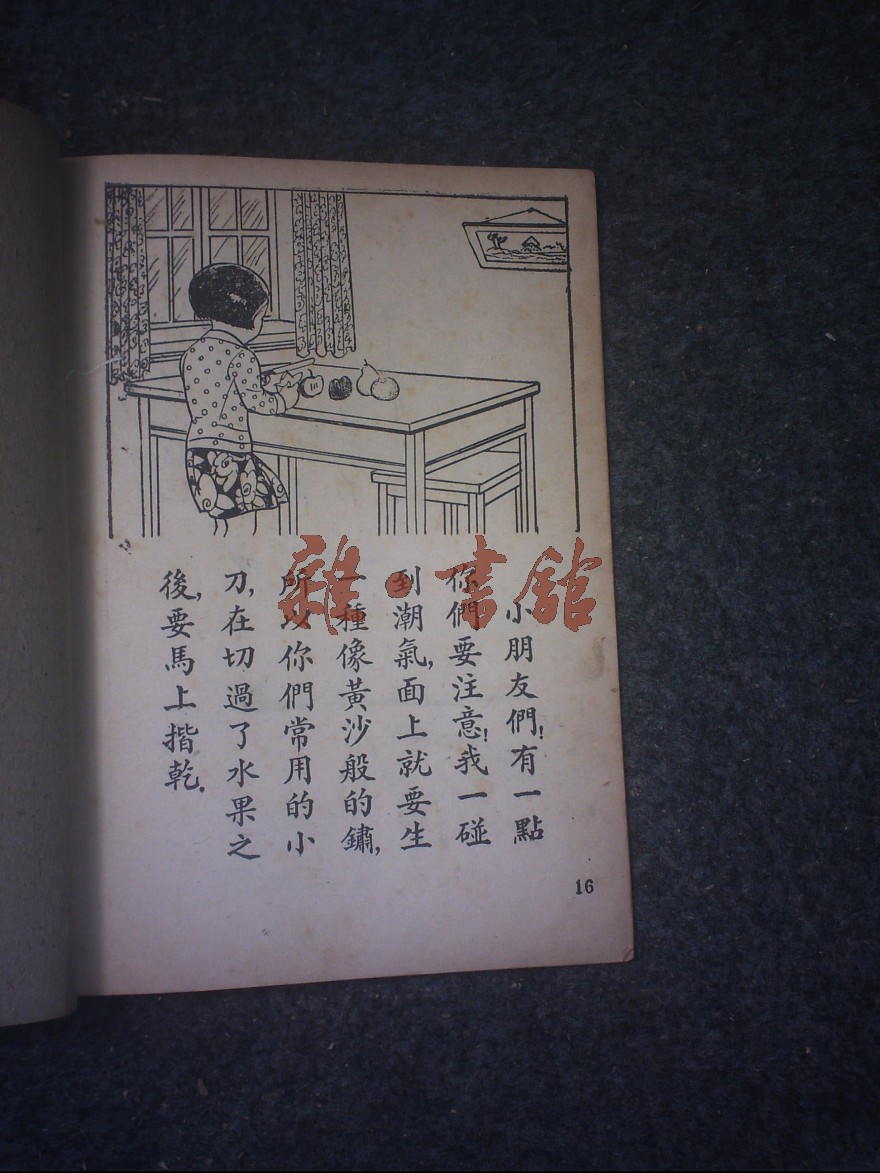 小朋友們!有一點
你們要注意!我一碰
到潮氣,面上就要生
一種像黃沙般的鏽,
所以你們常用的小
刀,在切過了水果之
後,要馬上揩乾.
16
雜·書館